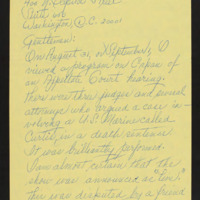 Washington, D.C. 2001
Gentlemen:
On August 31, or September 1, I
viewed a program on Capan of
an Appellate Court hearing.
There were three judges and several
attorneys who argued a case in-
volving a U.S. Marine called
Curtis, in a death sentence
It was brilliantly performed.
I am almost certain that the
show was announced as "Live"
this was disputed by a friend